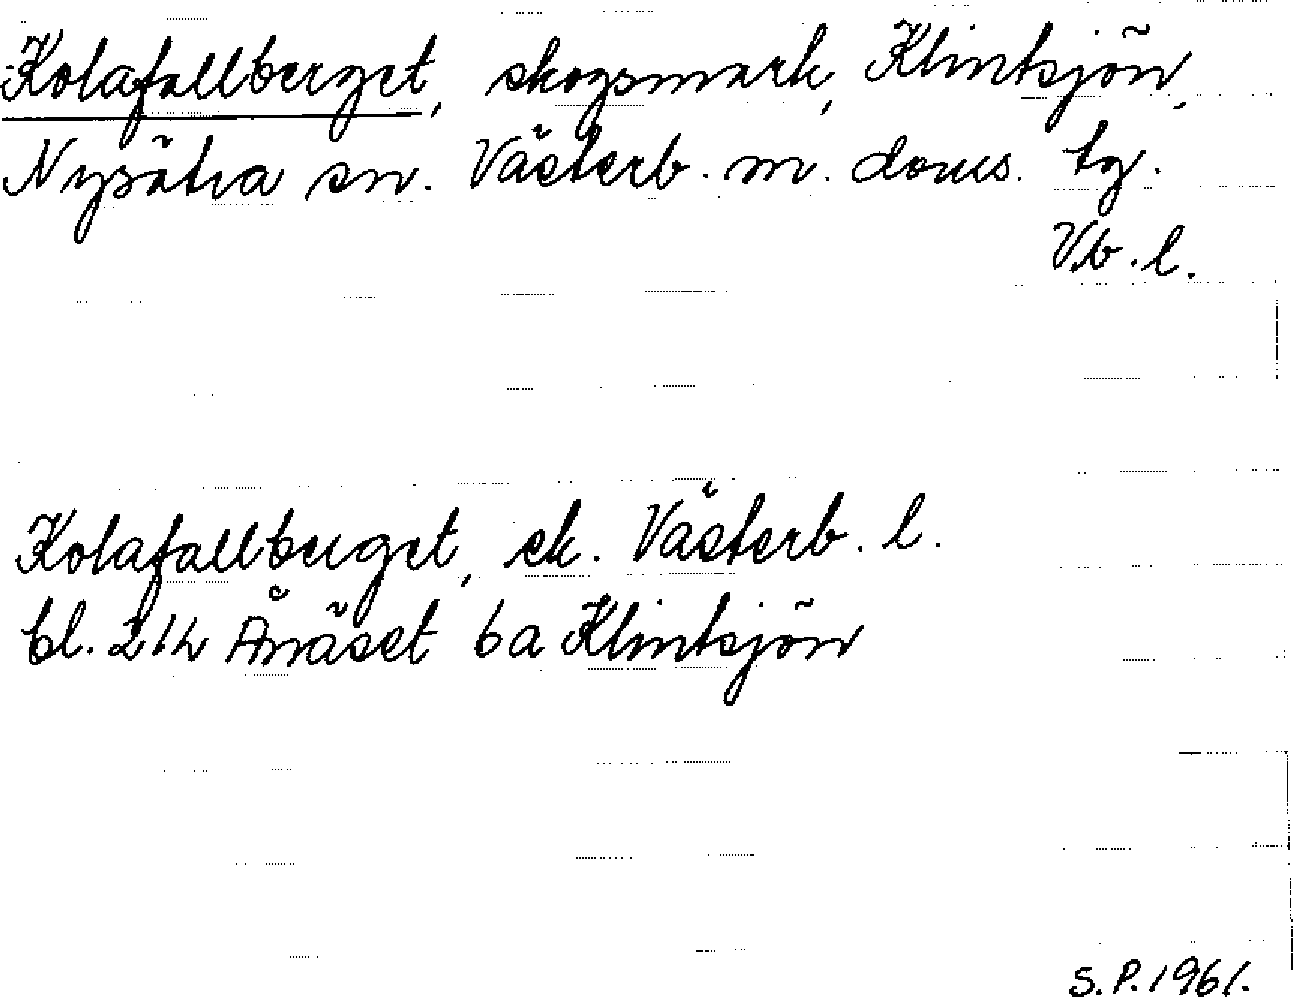 Kolafallberget, skogsmark, Klintsjön,
Nysätra sn. Västerb. m. doms. tg.
Vb. l.
Kolafallberget, ek. Västerb. l.
bl. 21h Ånäset 6a Klintsjön
S.P. 1961.